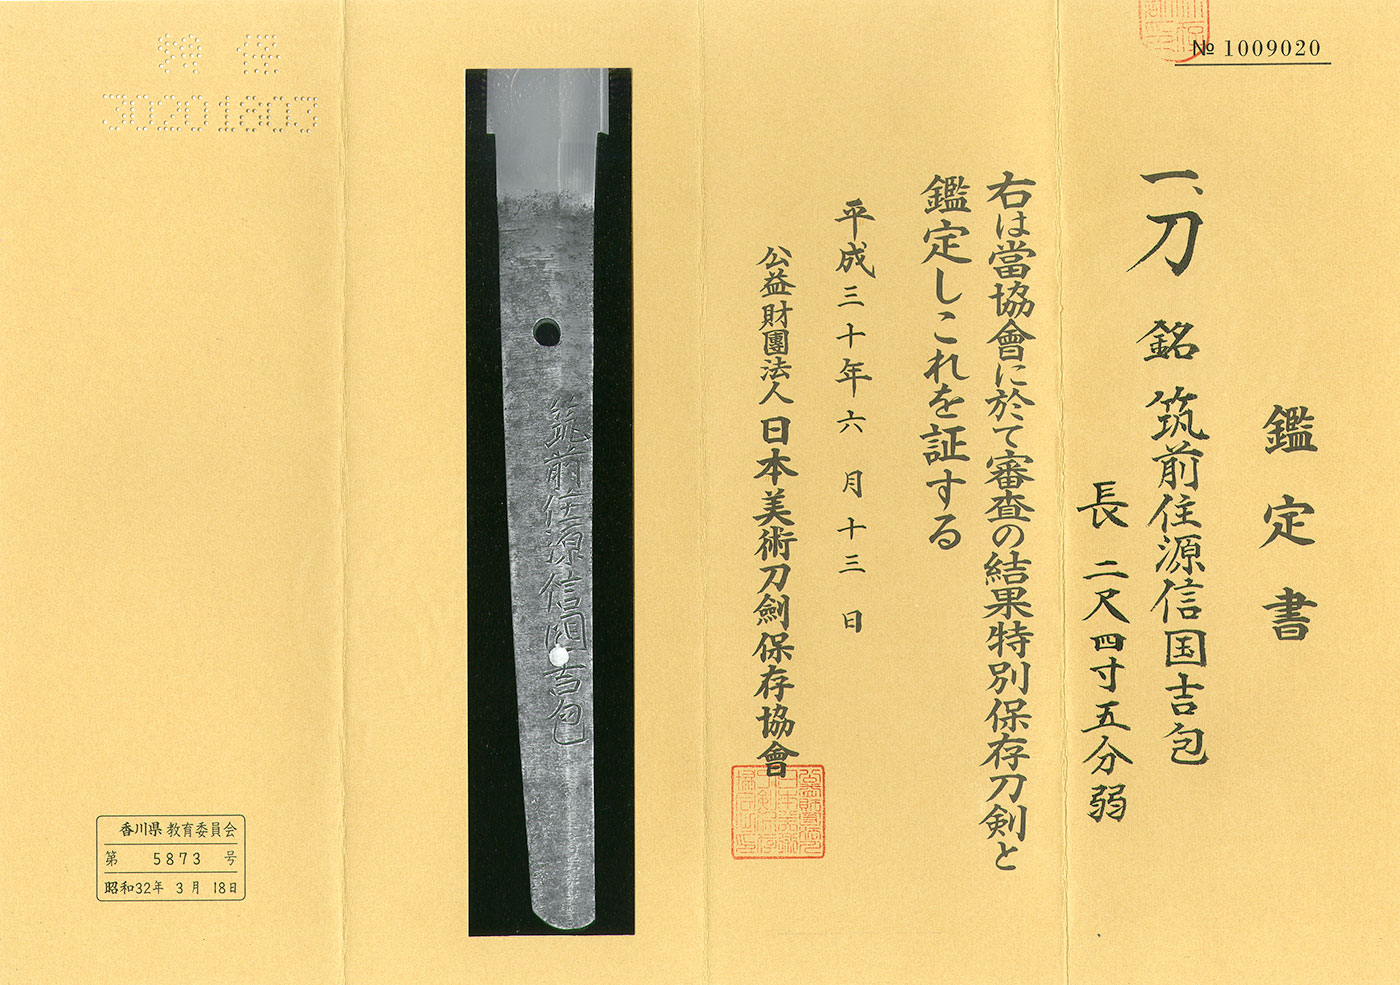 № 1009020
鑑定書
一、刀 銘 筑前住源信国吉包
長 二尺四寸五分弱
右は當協會に於て審査の結果特別保存刀剣と
鑑定しこれを証する
平成三十年六月十三日
公益財團法人 日本美術刀劍保存協會
筑前住源信国吉包
30201803
香川県教育委員会
第 5873 号
昭和32年 3月 18日